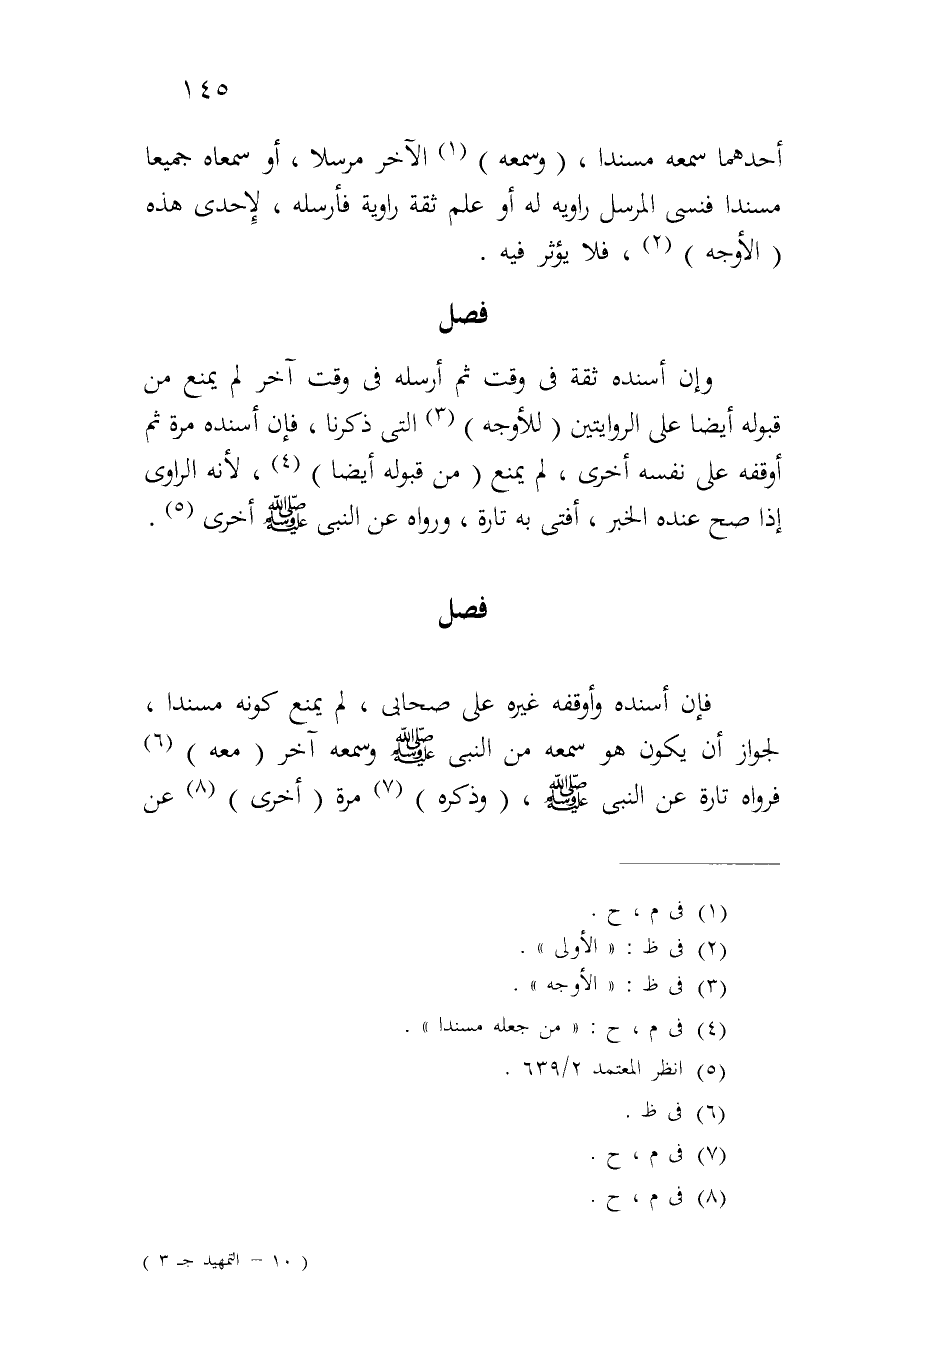 ١٤٥
أحدهما سمعه مسندا ، ( وسمعه ) (١) الآخر مرسلا ، أو سمعاه جميعا
مسندا فنسى المرسل راويه له أو علم ثقة راوية فأرسله ، لإحدى هذه
( الأوجه ) (٢) ، فلا يؤثر فيه .
فصل
وإن أسنده ثقة فى وقت ثم أرسله فى وقت آخر لم يمنع من
قبوله أيضا على الروايتين ( للأوجه ) (٣) التى ذكرنا ، فإن أسنده مرة ثم
أوقفه على نفسه أخرى ، لم يمنع ( من قبوله أيضا ) (٤) ، لأنه الراوى
إذا صح عنده الخبر ، أفتى به تارة ، ورواه عن النبى ﷺ أخرى (٥) .
فصل
فإن أسنده وأوقفه غيره على صحابى ، لم يمنع كونه مسندا ،
لجواز أن يكون هو سمعه من النبى ﷺ وسمعه آخر ( معه ) (٦)
فرواه تارة عن النبى ﷺ ، ( وذكره ) (٧) مرة ( أخرى ) (٨) عن
(١) فى م ، ح .
(٢) فى ظ : « الأولى » .
(٣) فى ظ : « الأوجه » .
(٤) فى م ، ح : « من جعله مسندا » .
(٥) انظر المعتمد ٦٣٩/٢ .
(٦) فى ظ .
(٧) فى م ، ح .
(٨) فى م ، ح .
( ١٠ – التمهيد جـ ٣ )